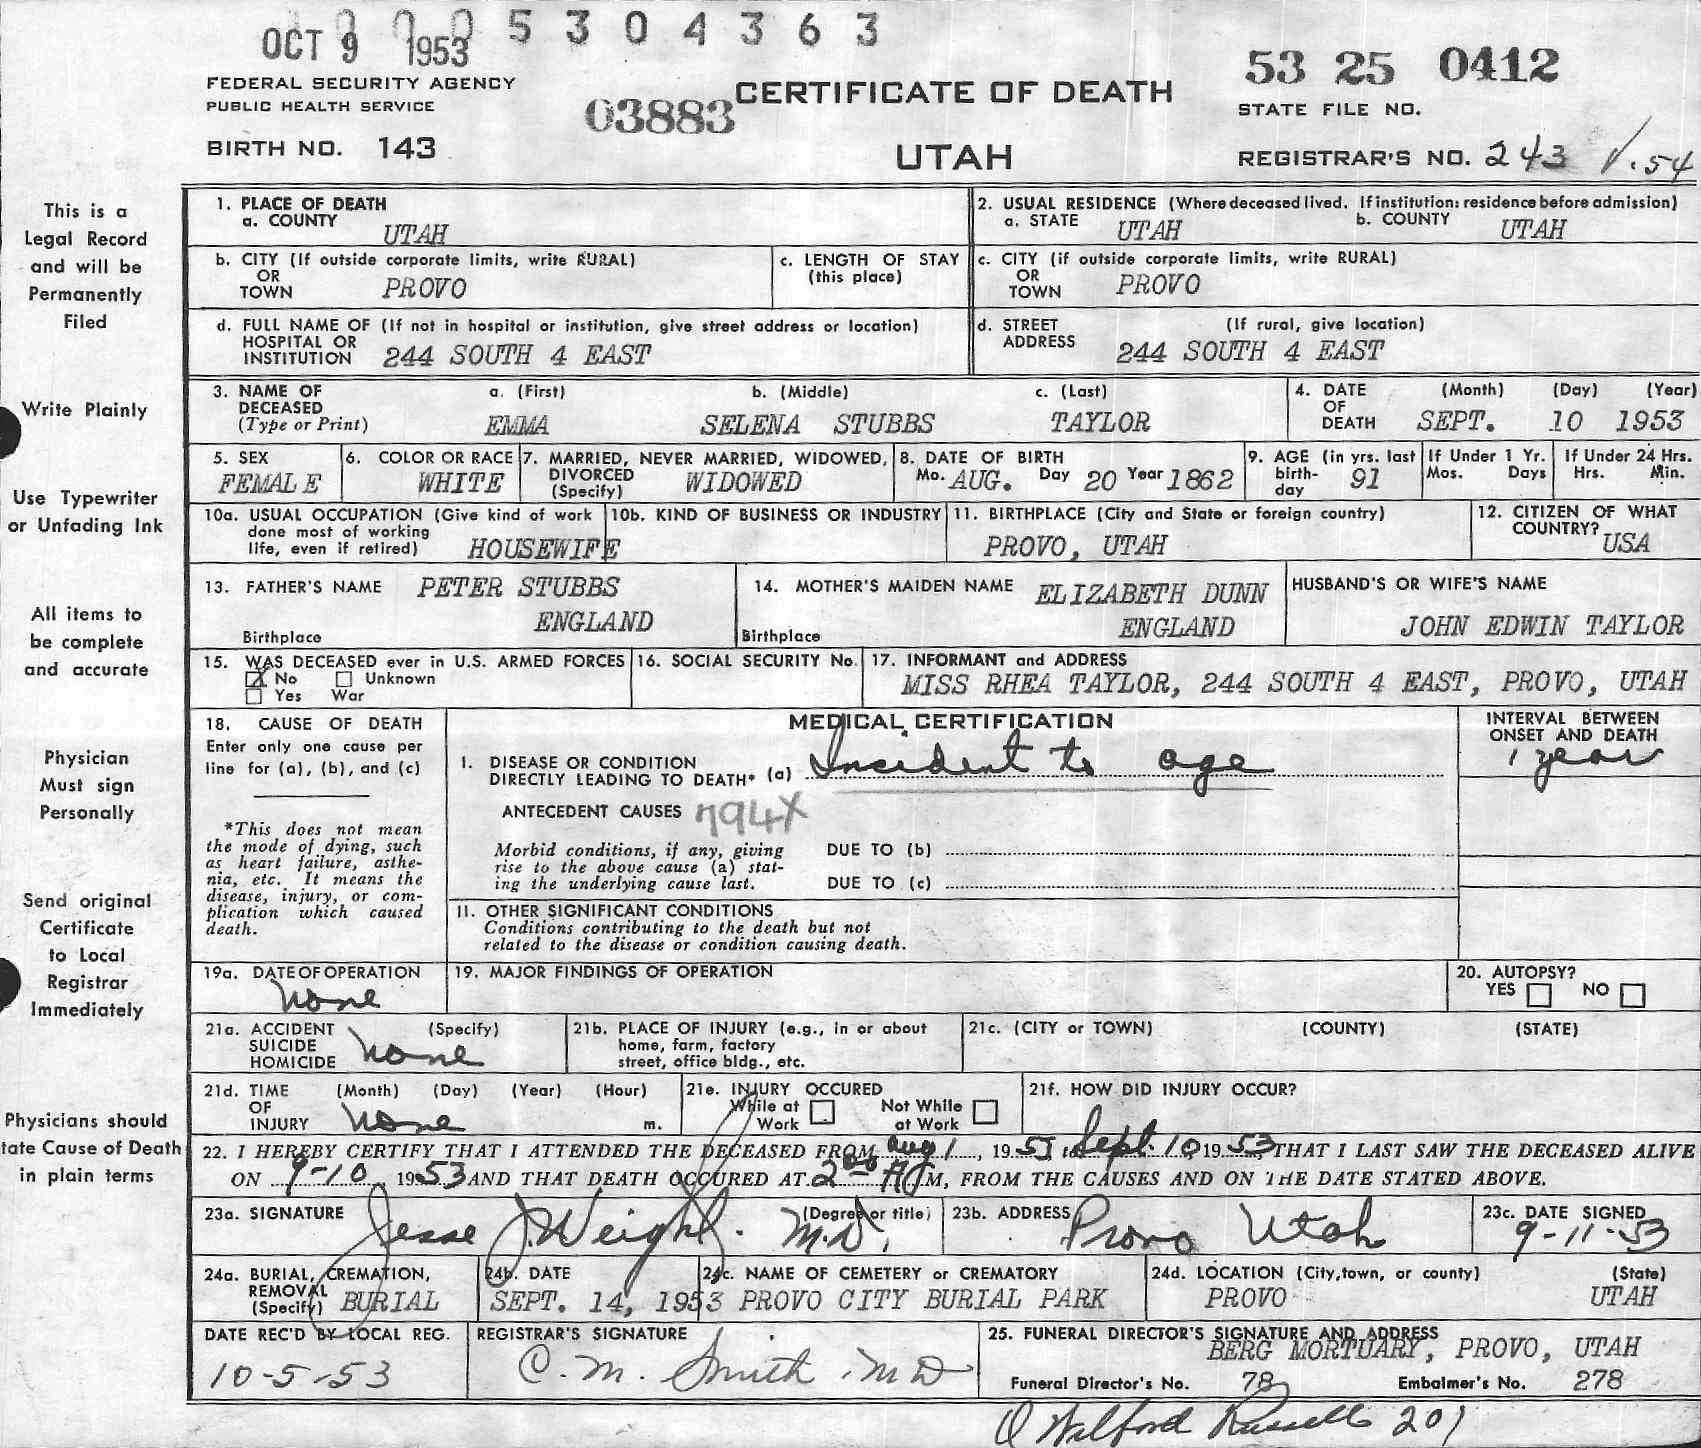 0005304363
OCT 9 1953
FEDERAL SECURITY AGENCY
PUBLIC HEALTH SERVICE
BIRTH NO. 143
03883
CERTIFICATE OF DEATH
UTAH
53 25 0412
STATE FILE NO.
REGISTRAR'S NO. 243 V.54
This is a
Legal Record
and will be
Permanently
Filed
Write Plainly
Use Typewriter
or Unfading Ink
All items to
be complete
and accurate
Physician
Must sign
Personally
Send original
Certificate
to Local
Registrar
Immediately
Physicians should
tate Cause of Death
in plain terms
1. PLACE OF DEATH
a. COUNTY
UTAH
2. USUAL RESIDENCE (Where deceased lived. If institution: residence before admission)
a. STATE UTAH b. COUNTY UTAH
b. CITY (If outside corporate limits, write RURAL)
OR
TOWN PROVO
c. LENGTH OF STAY
(this place)
c. CITY (if outside corporate limits, write RURAL)
OR
TOWN PROVO
d. FULL NAME OF (If not in hospital or institution, give street address or location)
HOSPITAL OR
INSTITUTION 244 SOUTH 4 EAST
d. STREET (If rural, give location)
ADDRESS 244 SOUTH 4 EAST
3. NAME OF a. (First) b. (Middle) c. (Last)
DECEASED
(Type or Print) EMMA SELENA STUBBS TAYLOR
4. DATE (Month) (Day) (Year)
OF
DEATH SEPT. 10 1953
5. SEX
FEMALE
6. COLOR OR RACE
WHITE
7. MARRIED, NEVER MARRIED, WIDOWED,
DIVORCED
(Specify) WIDOWED
8. DATE OF BIRTH
Mo. AUG. Day 20 Year 1862
9. AGE (in yrs. last
birth-
day 91
If Under 1 Yr.
Mos. Days
If Under 24 Hrs.
Hrs. Min.
10a. USUAL OCCUPATION (Give kind of work
done most of working
life, even if retired) HOUSEWIFE
10b. KIND OF BUSINESS OR INDUSTRY
11. BIRTHPLACE (City and State or foreign country)
PROVO, UTAH
12. CITIZEN OF WHAT
COUNTRY? USA
13. FATHER'S NAME PETER STUBBS
Birthplace ENGLAND
14. MOTHER'S MAIDEN NAME ELIZABETH DUNN
Birthplace ENGLAND
HUSBAND'S OR WIFE'S NAME
JOHN EDWIN TAYLOR
15. WAS DECEASED ever in U.S. ARMED FORCES
X No Unknown
Yes War
16. SOCIAL SECURITY No.
17. INFORMANT and ADDRESS
MISS RHEA TAYLOR, 244 SOUTH 4 EAST, PROVO, UTAH
18. CAUSE OF DEATH
Enter only one cause per
line for (a), (b), and (c)
*This does not mean
the mode of dying, such
as heart failure, asthe-
nia, etc. It means the
disease, injury, or com-
plication which caused
death.
MEDICAL CERTIFICATION
I. DISEASE OR CONDITION
DIRECTLY LEADING TO DEATH* (a) Incident to age
ANTECEDENT CAUSES 794X
Morbid conditions, if any, giving
rise to the above cause (a) stat-
ing the underlying cause last.
DUE TO (b)
DUE TO (c)
II. OTHER SIGNIFICANT CONDITIONS
Conditions contributing to the death but not
related to the disease or condition causing death.
INTERVAL BETWEEN
ONSET AND DEATH
1 year
19a. DATE OF OPERATION
None
19. MAJOR FINDINGS OF OPERATION
20. AUTOPSY?
YES NO
21a. ACCIDENT (Specify)
SUICIDE
HOMICIDE None
21b. PLACE OF INJURY (e.g., in or about
home, farm, factory
street, office bldg., etc.
21c. (CITY or TOWN) (COUNTY) (STATE)
21d. TIME (Month) (Day) (Year) (Hour)
OF
INJURY None m.
21e. INJURY OCCURED
While at
Work
Not While
at Work
21f. HOW DID INJURY OCCUR?
22. I HEREBY CERTIFY THAT I ATTENDED THE DECEASED FROM Aug 1, 1953 to Sept. 10 1953 THAT I LAST SAW THE DECEASED ALIVE
ON 9-10 1953 AND THAT DEATH OCCURED AT 2 00 A M, FROM THE CAUSES AND ON THE DATE STATED ABOVE.
23a. SIGNATURE (Degree or title)
Jesse J. Weight. M.D.
23b. ADDRESS
Provo Utah
23c. DATE SIGNED
9-11-53
24a. BURIAL, CREMATION,
REMOVAL
(Specify) BURIAL
24b. DATE
SEPT. 14, 1953
24c. NAME OF CEMETERY or CREMATORY
PROVO CITY BURIAL PARK
24d. LOCATION (City, town, or county) (State)
PROVO UTAH
DATE REC'D BY LOCAL REG.
10-5-53
REGISTRAR'S SIGNATURE
C. M. Smith MD
25. FUNERAL DIRECTOR'S SIGNATURE AND ADDRESS
BERG MORTUARY, PROVO, UTAH
Funeral Director's No. 78 Embalmer's No. 278
Wilford Russell 201